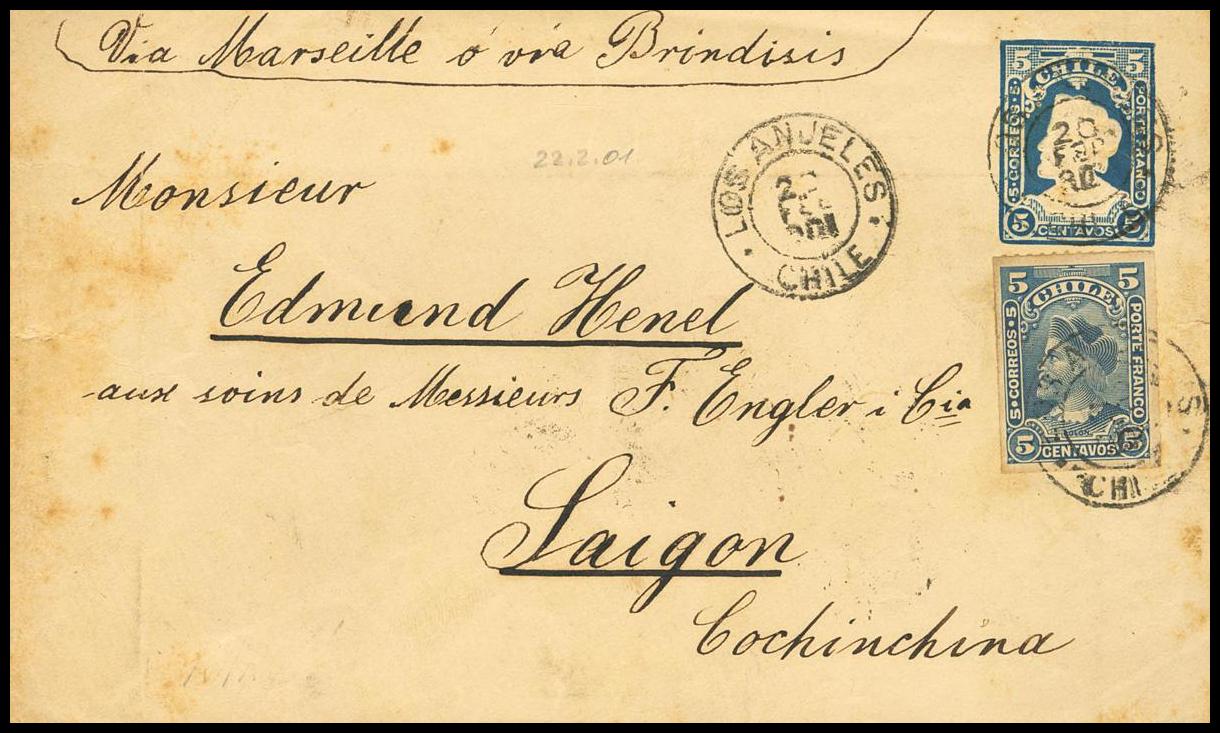 Via Marseille ó via Brindisis
22.2.01
Monsieur
Edmund Henel
aux soins de Messieurs F. Engler i Cia
Saigon
Cochinchina
LOS ANJELES
CHILE
5 5
CHILE
5·CORREOS·5
PORTE FRANCO
5 CENTAVOS 5
20
5 5
CHILE
5·CORREOS·5
PORTE FRANCO
5 CENTAVOS 5
CHI